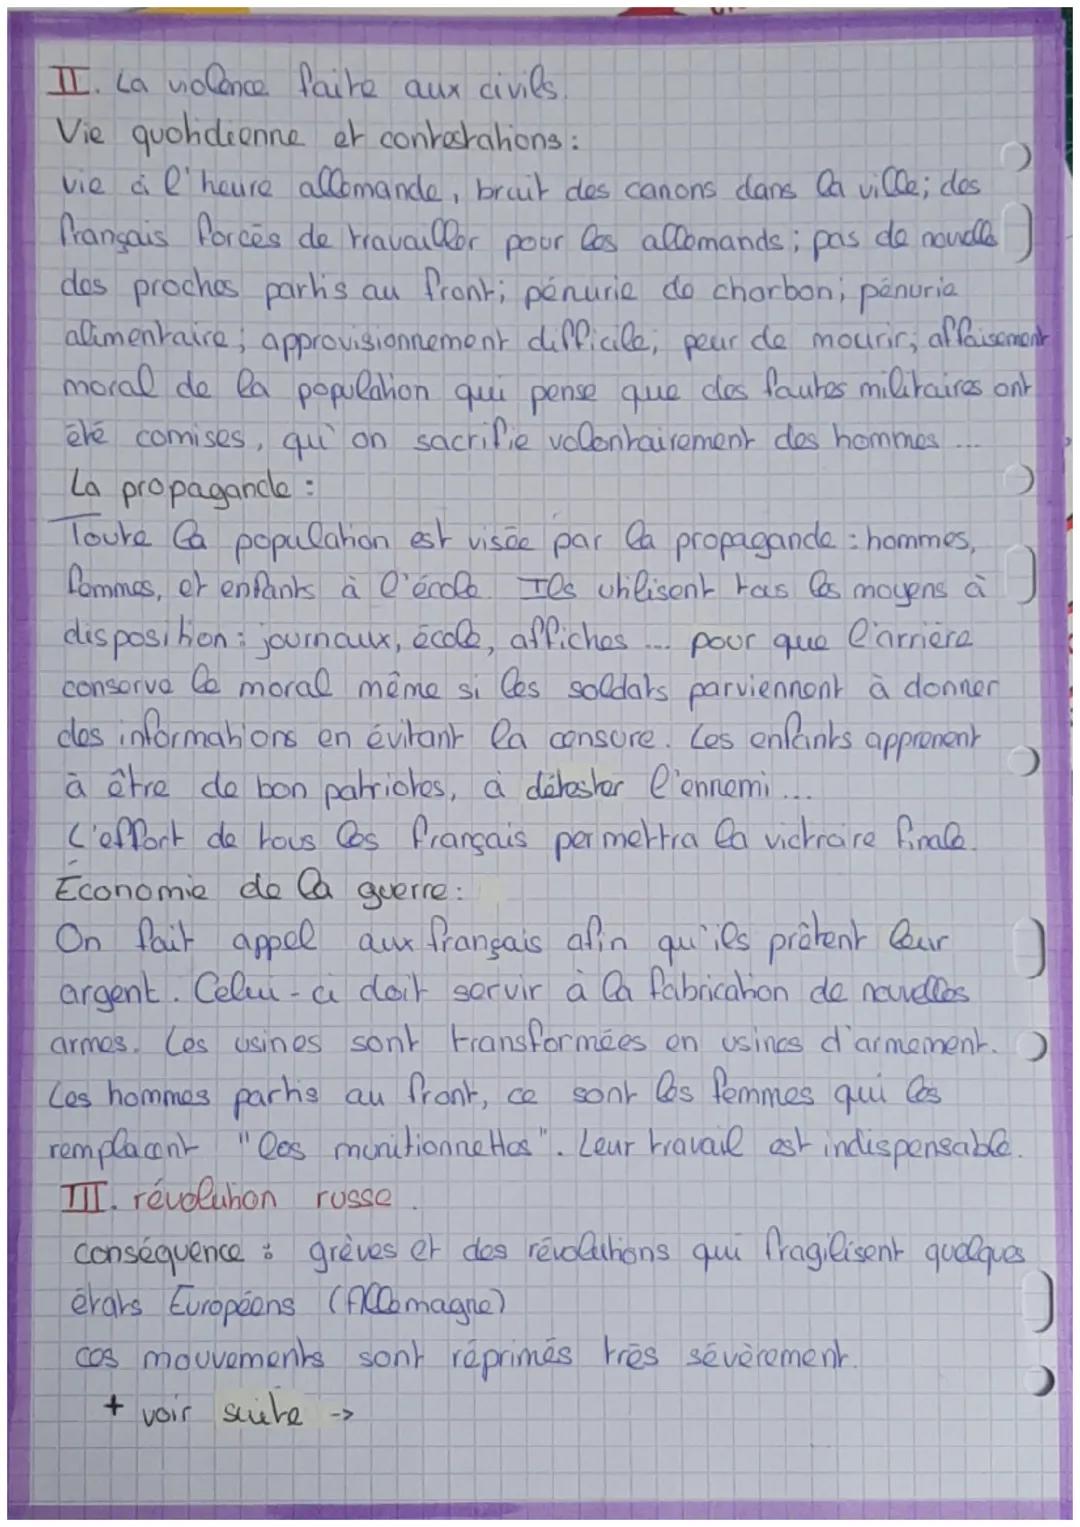 II. La violence faite aux civils.
Vie quotidienne et contestations :
vie à l'heure allemande, bruit des canons dans la ville; des
français forcés de travailler pour les allemands; pas de nouvelle
des proches partis au front; pénurie de charbon; pénurie
alimentaire; approvisionnement difficile; peur de mourir; affaisement
moral de la population qui pense que des fautes militaires ont
été comises, qu'on sacrifie volontairement des hommes ...
La propagande :
Toute la population est visée par la propagande : hommes,
femmes, et enfants à l'école. Ils utilisent tous les moyens à
disposition : journaux, école, affiches ... pour que l'arrière
conserve le moral même si les soldats parviennent à donner
des informations en évitant la censure. Les enfants apprenent
à être de bon patriotes, à détester l'ennemi ...
L'effort de tous les français permettra la victroire finale.
Économie de la guerre :
On fait appel aux français afin qu'ils prêtent leur
argent. Celui-ci doit servir à la fabrication de nouvelles
armes. Les usines sont transformées en usines d'armement.
Les hommes partis au front, ce sont les femmes qui les
remplacent "les munitionnettes". Leur travail est indispensable.
III. révolution russe.
conséquence : grèves et des révolutions qui fragilisent quelques
états Européens (Allemagne)
ces mouvements sont réprimés très sévèrement.
+ voir suite ->